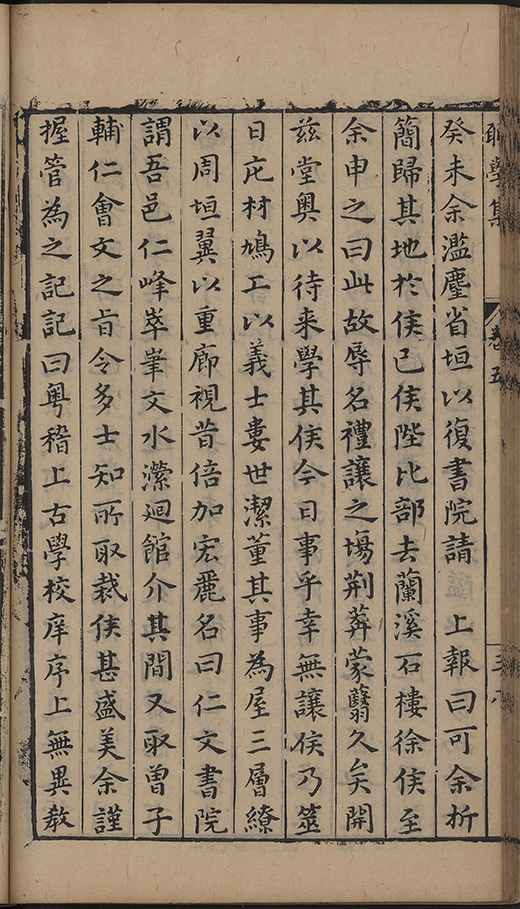 願學集 卷五 三八
癸未余濫廛省垣以復書院請 上報曰可余折
簡歸其地於侯已侯陞比部去蘭溪石樓徐侯至
余申之曰此故辱名禮讓之場荆莽蒙翳久矣開
茲堂奧以待来學其侯今日事乎幸無讓侯乃筮
日庀材鳩工以義士婁世潔董其事為屋三層繚
以周垣翼以重廊視昔倍加宏麗名曰仁文書院
謂吾邑仁峰萃峯文水瀠迴館介其間又取曽子
輔仁會文之㫖令多士知所取裁侯甚盛美余謹
握管為之記記曰粤稽上古學校庠序上無異教